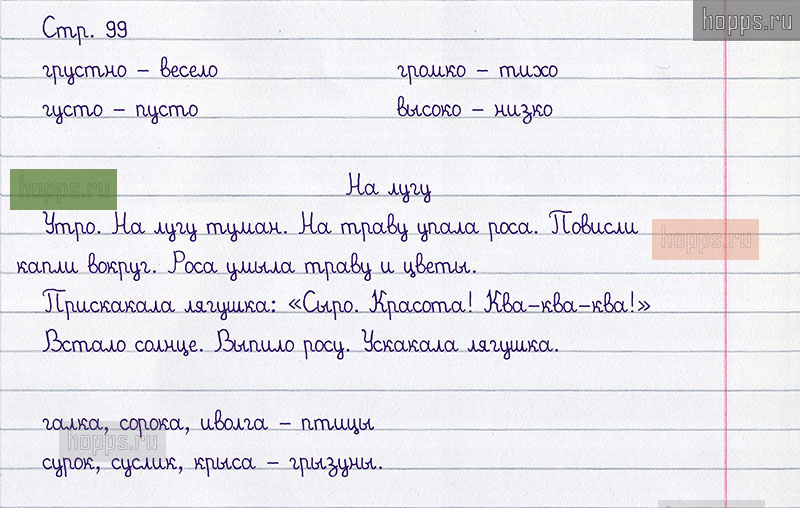 Стр. 99
hopps.ru
грустно – весело громко – тихо
густо – пусто высоко – низко
hopps.ru
На лугу
Утро. На лугу туман. На траву упала роса. Повисли
hopps.ru
капли вокруг. Роса умыла траву и цветы.
Прискакала лягушка: «Сыро. Красота! Ква-ква-ква!»
Встало солнце. Выпило росу. Ускакала лягушка.
галка, сорока, иволга – птицы
hopps.ru
сурок, суслик, крыса – грызуны.